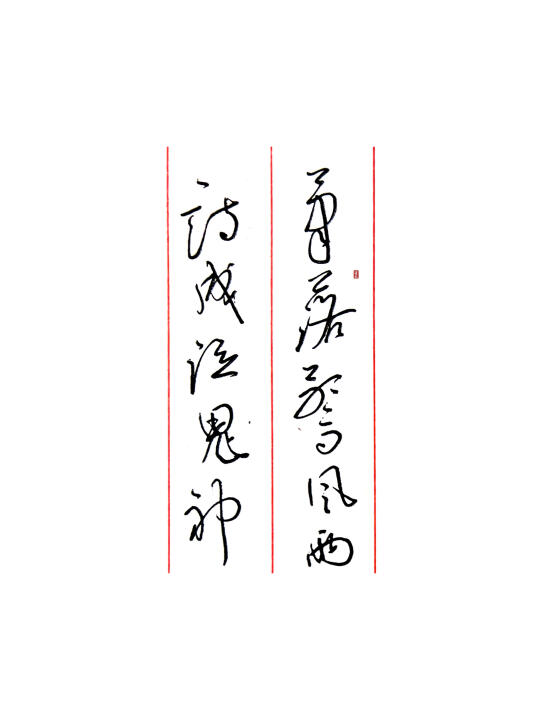 笔落驚风雨
詩成泣鬼神